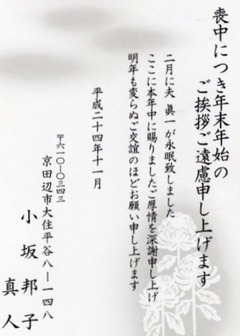 喪中につき年末年始の
ご挨拶ご遠慮申し上げます
二月に夫 眞一が永眠致しました
ここに本年中に賜りましたご厚情を深謝申し上げ
明年も変らぬご交誼のほどお願い申し上げます
平成二十四年十一月
〒六一〇-〇三四三
京田辺市大住平谷八-一四八
小坂邦子
真人